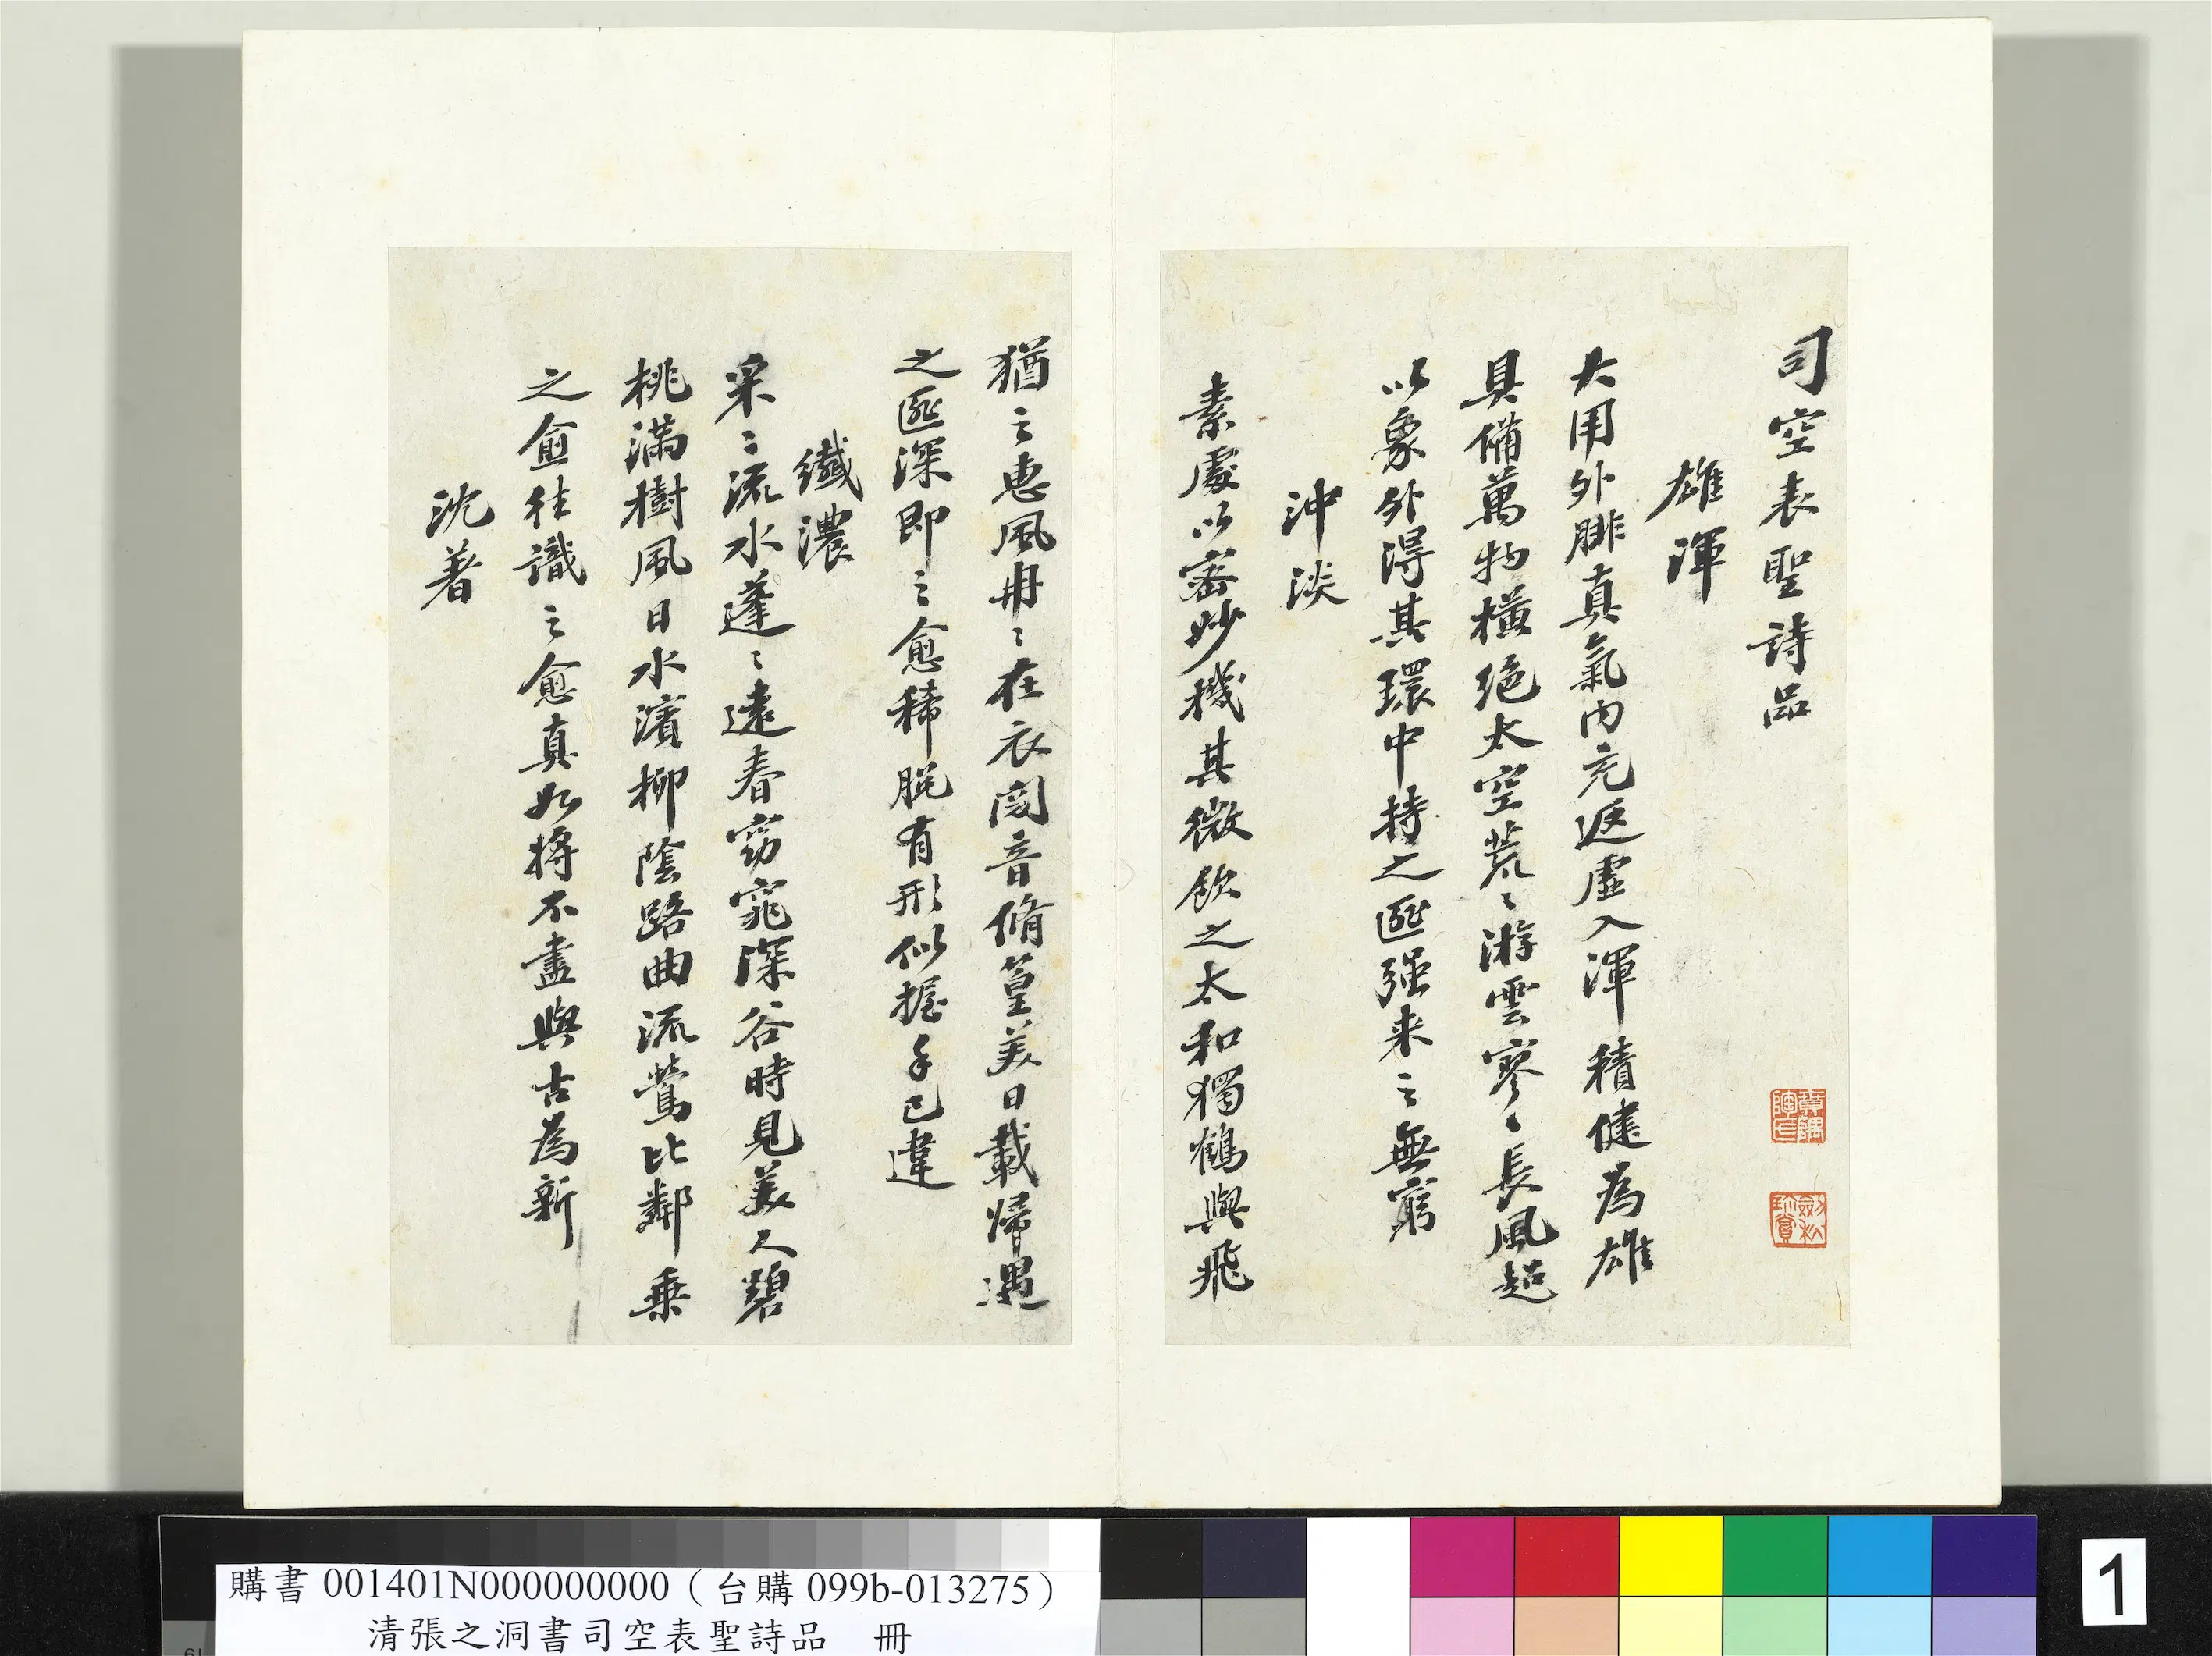 司空表聖詩品
雄渾
大用外腓真氣內充返虛入渾積健為雄
具備萬物橫絕太空荒〻游雲寥〻長風超
以象外得其環中持之匪强来之無窮
沖淡
素處以密妙機其微飲之太和獨鶴與飛
猶之惠風冉〻在衣閱音脩篁美日載歸遇
之匪深即之愈稀脫有形似握手已違
纖濃
采〻流水蓬〻遠春窈窕深谷時見美人碧
桃滿樹風日水濱柳陰路曲流鶯比鄰乘
之愈往識之愈真如將不盡與古為新
沈著
購書 001401N000000000（台購 099b-013275）
清張之洞書司空表聖詩品　冊
1
19